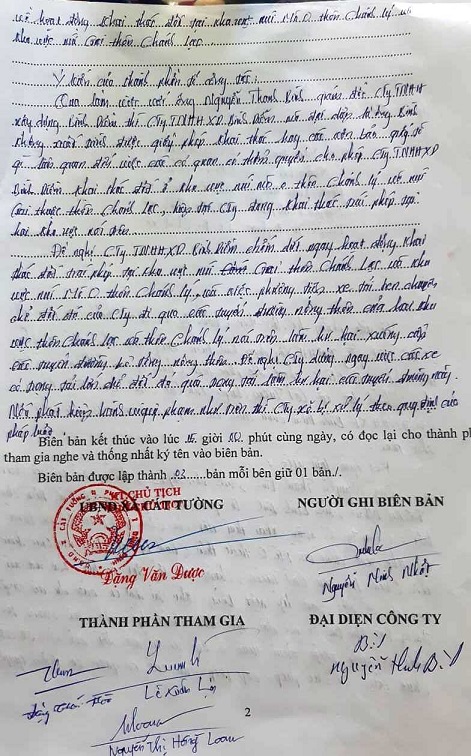 về hoạt động khai thác đất tại khu vực núi Mỏ O thôn Chánh Lý và
khu vực núi Gai thôn Chánh Lạc
Ý kiến của thành phần tổ công tác:
Qua làm việc với ông Nguyễn Thanh Bình quản đốc CTy TNHH
xây dựng Bình Điềm thì CTy TNHH.XD Bình Điềm mà đại diện là ông Bình
không xuất trình được giấy phép khai thác hay các văn bản giấy tờ
gì liên quan đến việc các cơ quan có thẩm quyền cho phép CTy.TNHH.XD
Bình Điềm khai thác đất ở khu vực núi Mỏ O thôn Chánh Lý và núi
Gai thuộc thôn Chánh Lạc, hiện tại CTy đang khai thác trái phép tại
hai khu vực nói trên
Đề nghị CTy.TNHH.XD Bình Điềm chấm dứt ngay hoạt động khai
thác đất trái phép tại khu vực núi Gai thôn Chánh Lạc và khu
vực núi Mỏ O thôn Chánh Lý, và việc phương tiện xe tải ben chuyên
chở đất đi của CTy đi qua các tuyến đường nông thôn của hai khu
vực thôn Chánh Lạc và thôn Chánh Lý nói trên làm hư hại xuống cấp
các tuyến đường bê tông nông thôn. Đề nghị CTy dừng ngay việc các xe
có trọng tải lớn chở đất đá quá trọng tải làm hư hại các tuyến đường này.
Nếu phát hiện không vi phạm như trên thì CTy xã sẽ xử lý theo quy định của
pháp luật.
Biên bản kết thúc vào lúc giờ phút cùng ngày, có đọc lại cho thành ph
tham gia nghe và thống nhất ký tên vào biên bản.
Biên bản được lập thành 02 bản mỗi bên giữ 01 bản./.
UBND XÃ CÁT TƯỜNG NGƯỜI GHI BIÊN BẢN
CHỦ TỊCH
Đặng Văn Được
Nguyễn Minh Nhật
THÀNH PHẦN THAM GIA ĐẠI DIỆN CÔNG TY
Lê Xuân
Nguyễn Thanh Bình
2
Nguyễn Thị Hồng Loan